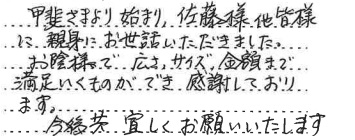 甲斐さまより始まり、佐藤様他皆様
に親身にお世話いただきました。
お陰様で広さ、サイズ、金額まで
満足いくものができ感謝しており
ます。
今後共宜しくお願いいたします